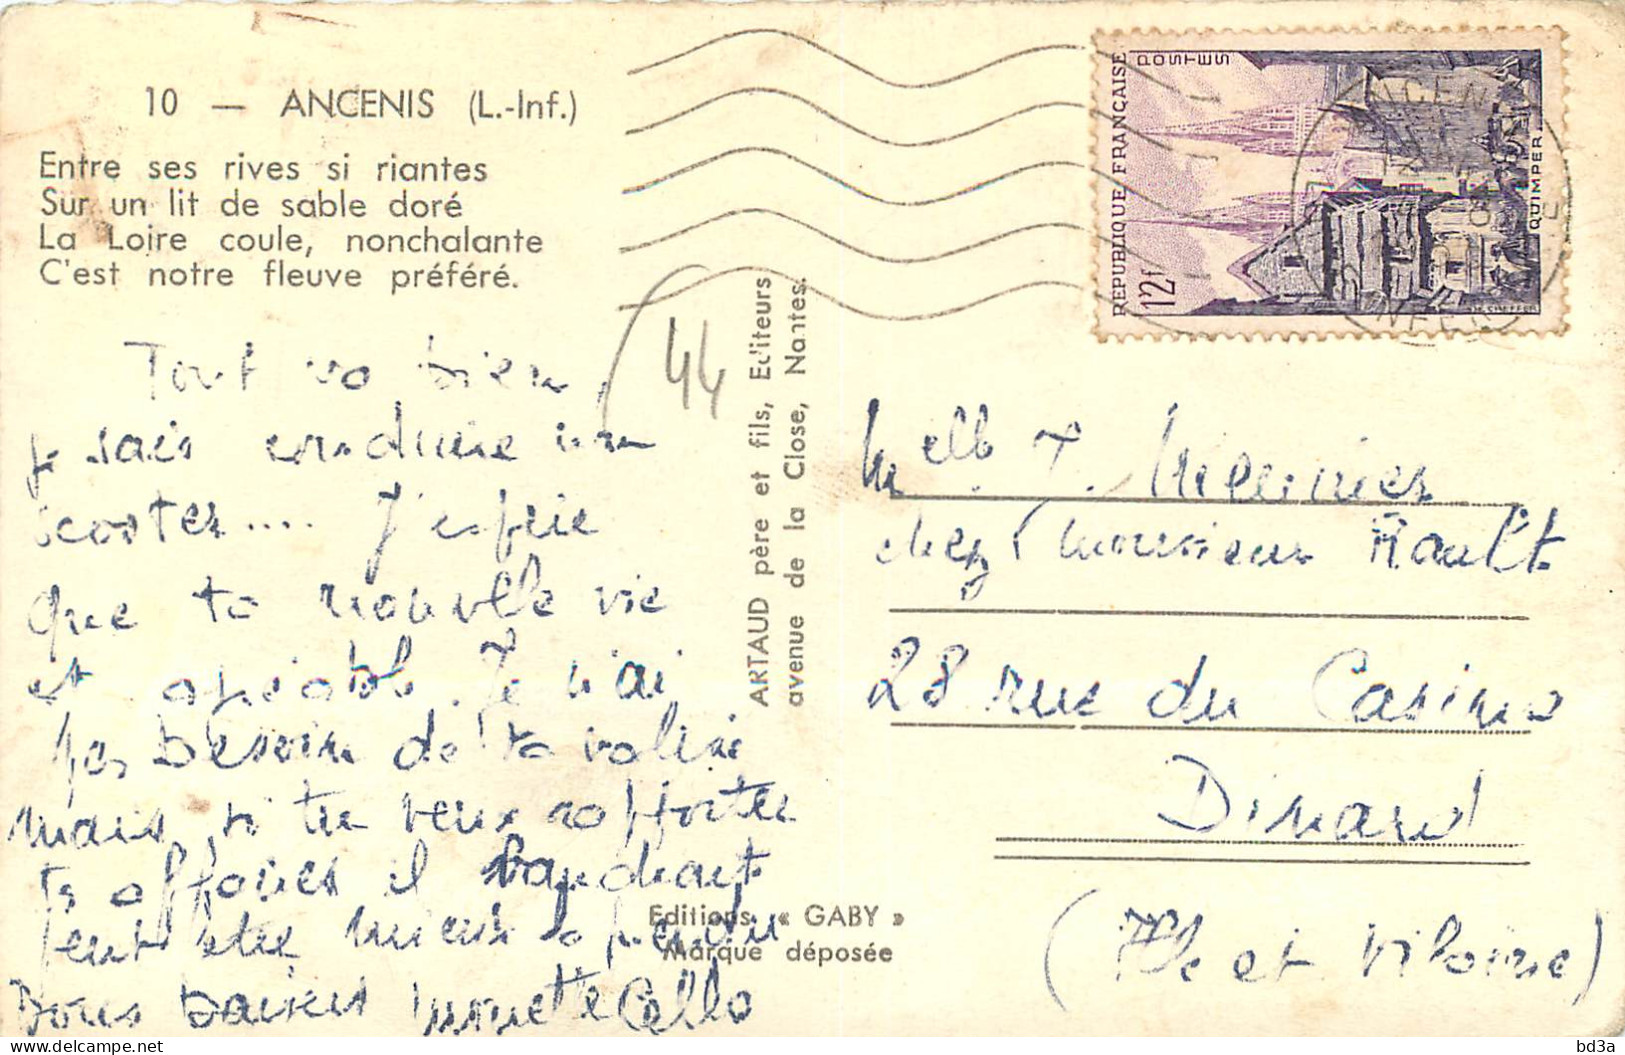 10 — ANCENIS (L.-Inf.)
Entre ses rives si riantes
Sur un lit de sable doré
La Loire coule, nonchalante
C'est notre fleuve préféré.
44
Tout va bien,
je sais conduire un
scooter.... J'espère
que ta nouvelle vie
est agréable. Je n'ai
pas besoin de ta valise
mais si tu veux rapporter
tes affaires il faudrait
peut être mieux
Bons baisers
ARTAUD père et fils, Editeurs
avenue de la Close, Nantes.
Editions « GABY »
Marque déposée
REPUBLIQUE FRANÇAISE
POSTES
12f
QUIMPER
Melle J. Meunier
chez Monsieur Rault
28 rue du Casino
Dinard
(Ille et Vilaine)
bd3a